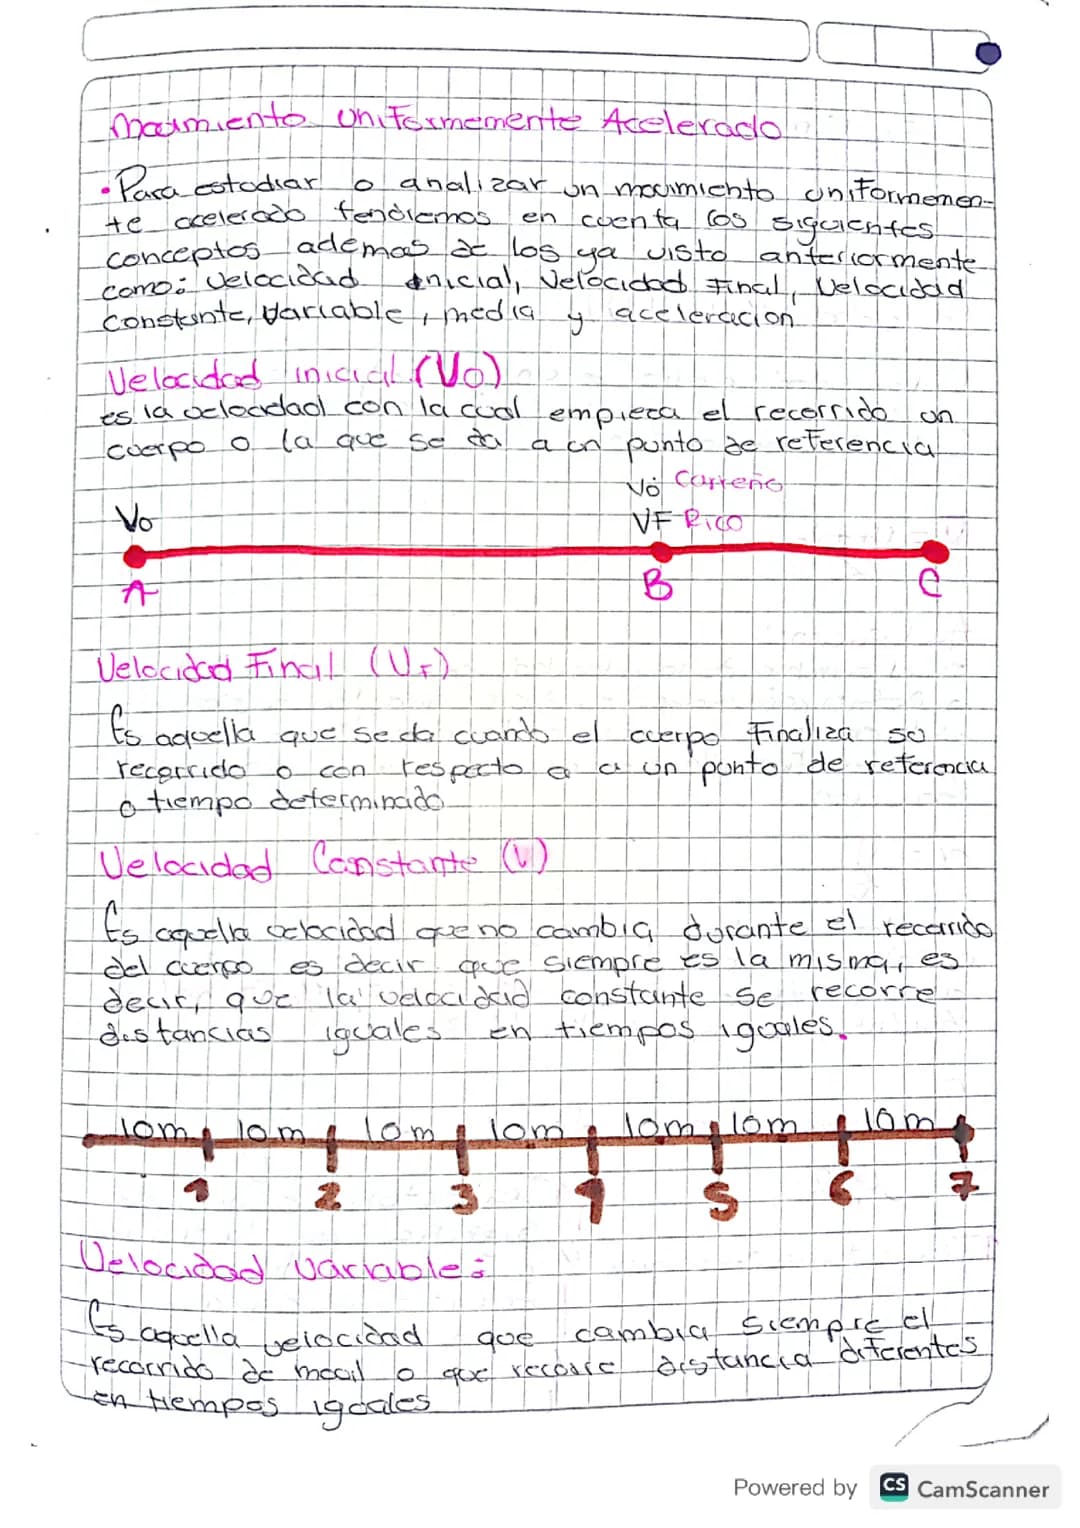 Movimiento Uniformemente Acelerado
• Para estudiar o analizar un movimiento uniformemen-
te acelerado tendremos en cuenta los siguientes
conceptos ademas de los ya visto anteriormente
como: velocidad inicial, Velocidad Final, Velocidad
Constante, Variable, media y aceleracion
Velocidad inicial (Vo)
es la velocidad con la cual empieza el recorrido un
cuerpo o la que se da a un punto de referencia
Vo Carreño
Vo VF Rico
A B C
Velocidad Final (VF)
Es aquella que se da cuando el cuerpo Finaliza su
recorrido o con respecto a a un punto de referencia
o tiempo determinado
Velocidad Constante (V)
Es aquella velocidad que no cambia durante el recorrido
del cuerpo es decir que siempre es la misma, es
decir, que la velocidad constante se recorre
distancias iguales en tiempos iguales.
10m 10m 10m 10m 10m 10m 10m
1 2 3 4 5 6 7
Velocidad variable:
Es aquella velocidad que cambia siempre el
recorrido de movil o que recorre distancia diferentes
en tiempos iguales
Powered by CS CamScanner